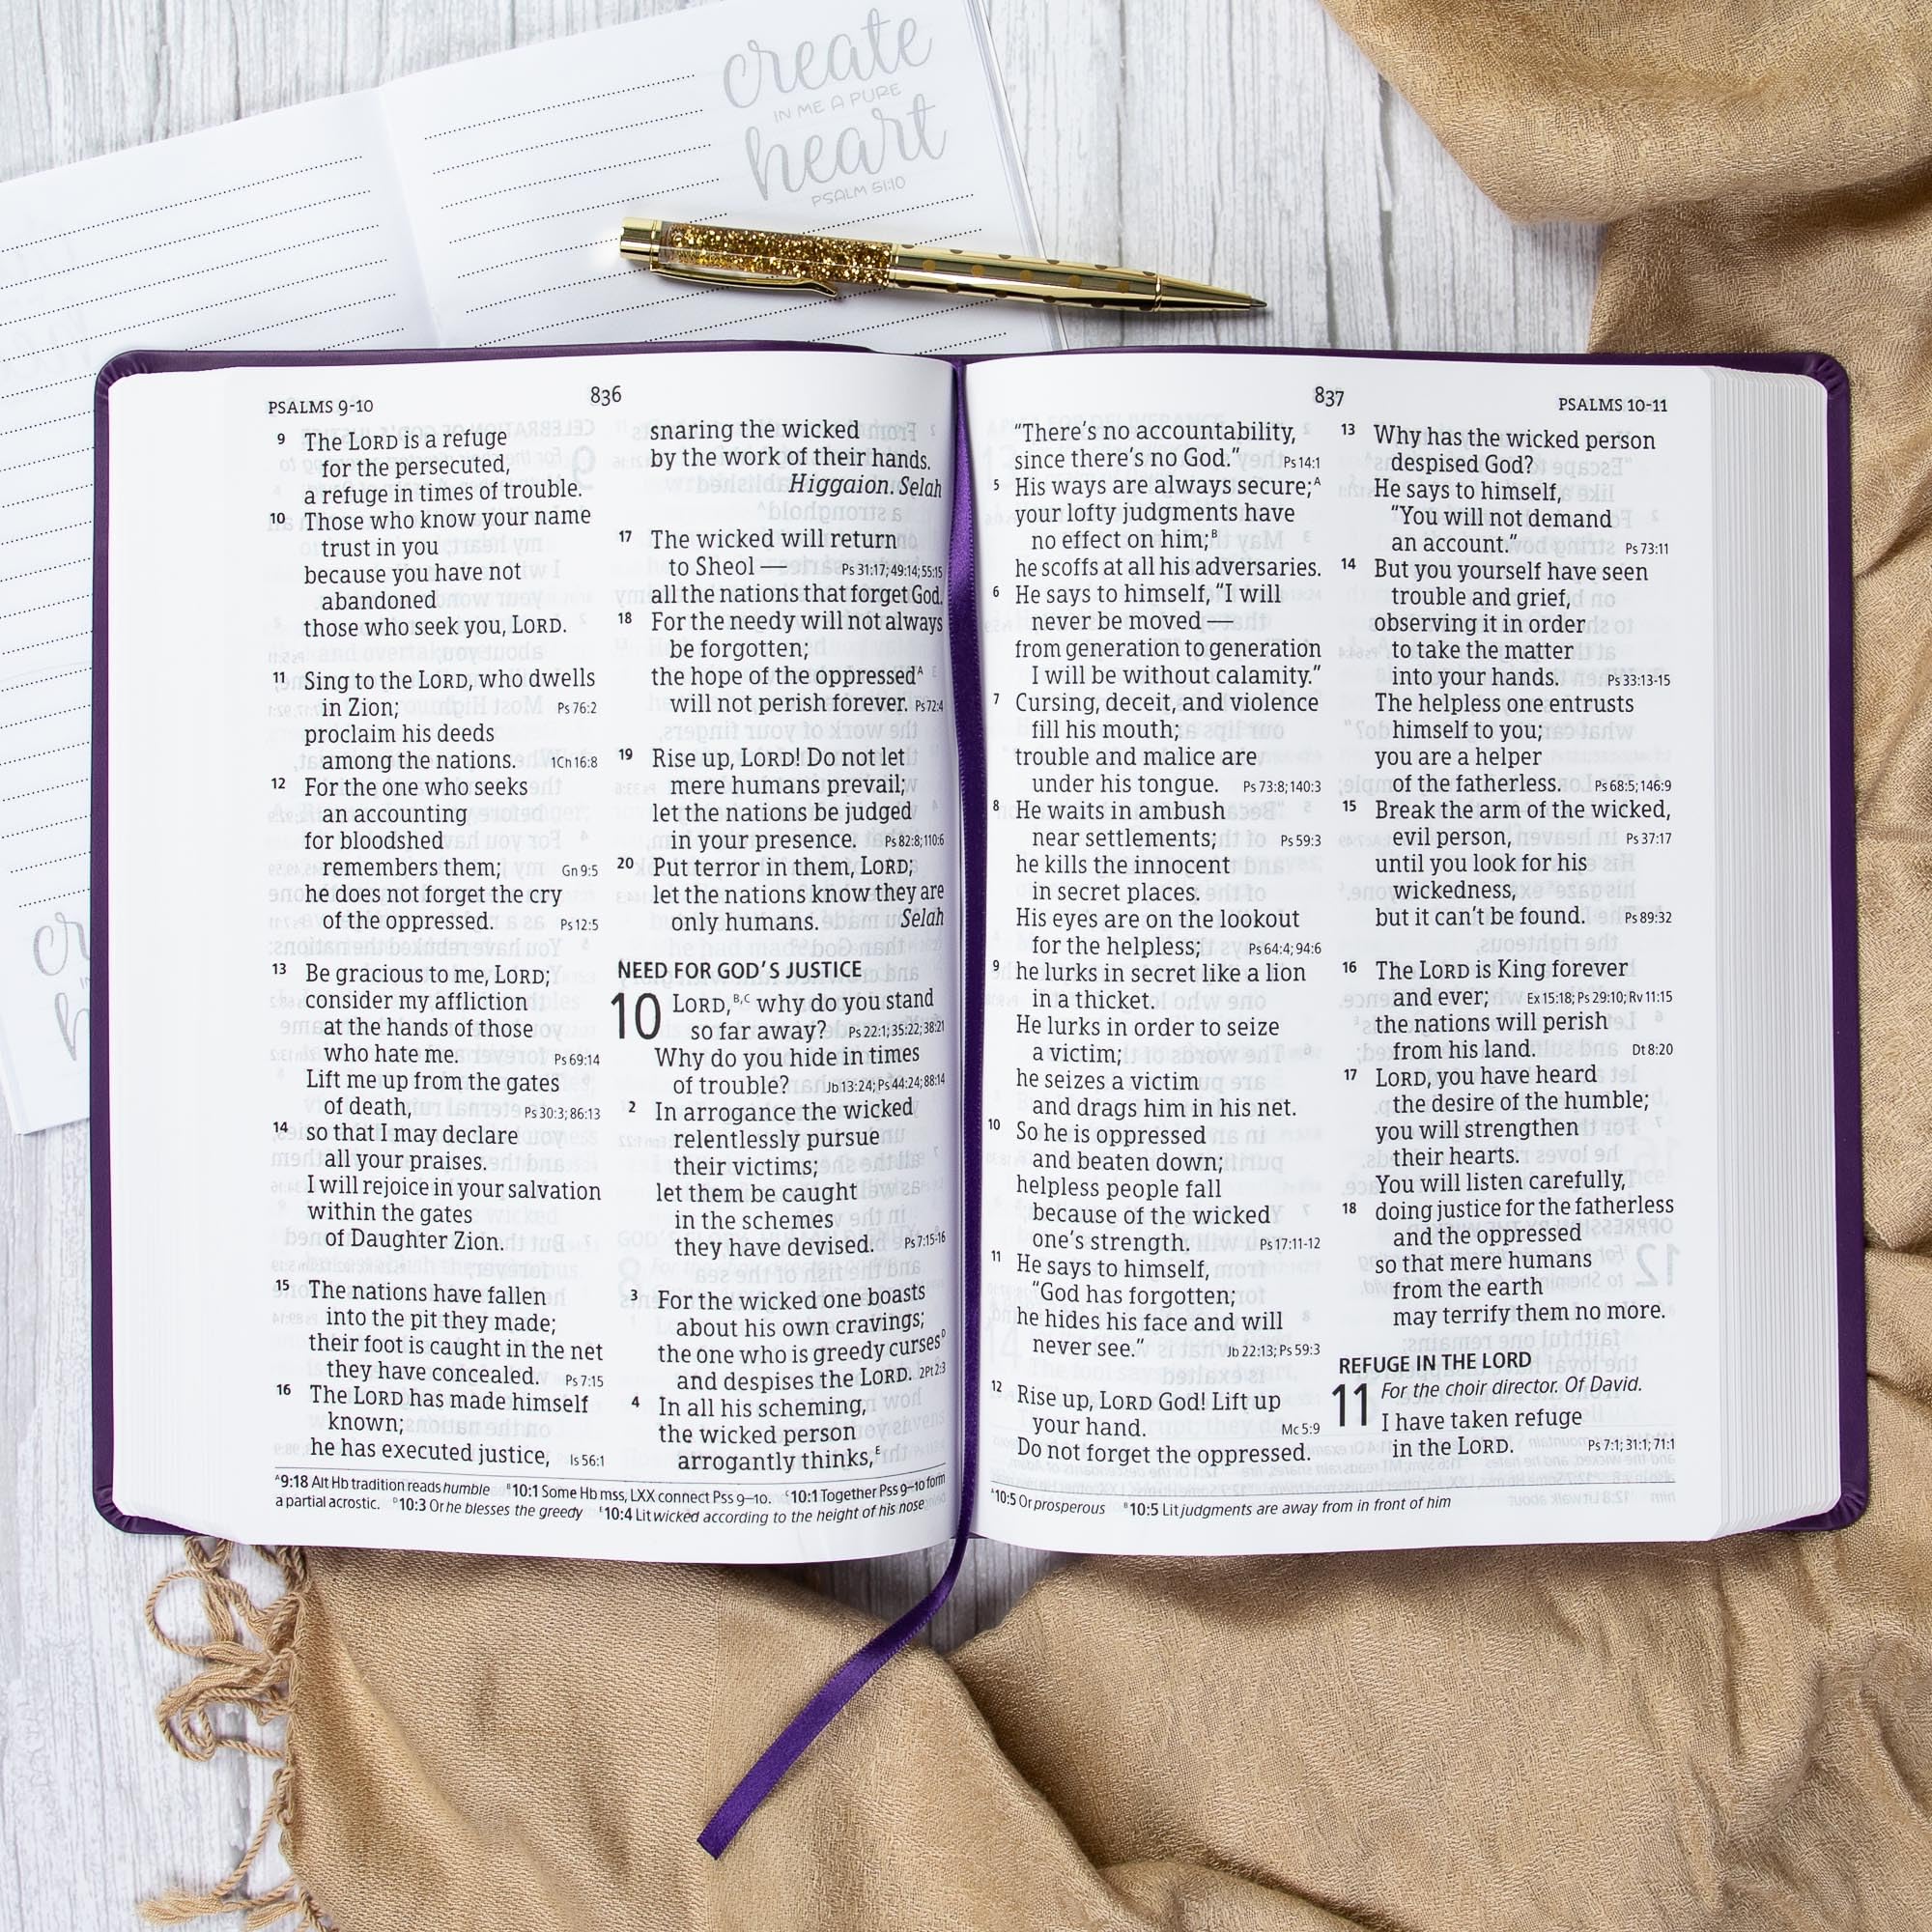 create
IN ME A PURE
heart
PSALM 51:10
PSALMS 9-10
836
9 The LORD is a refuge
for the persecuted,
a refuge in times of trouble.
10 Those who know your name
trust in you
because you have not
abandoned
those who seek you, LORD.
11 Sing to the LORD, who dwells
in Zion; Ps 76:2
proclaim his deeds
among the nations. 1Ch 16:8
12 For the one who seeks
an accounting
for bloodshed
remembers them; Gn 9:5
he does not forget the cry
of the oppressed. Ps 12:5
13 Be gracious to me, LORD;
consider my affliction
at the hands of those
who hate me. Ps 69:14
Lift me up from the gates
of death, Ps 30:3; 86:13
14 so that I may declare
all your praises.
I will rejoice in your salvation
within the gates
of Daughter Zion.
15 The nations have fallen
into the pit they made;
their foot is caught in the net
they have concealed. Ps 7:15
16 The LORD has made himself
known;
he has executed justice, Is 56:1
snaring the wicked
by the work of their hands.
Higgaion. Selah
17 The wicked will return
to Sheol — Ps 31:17; 49:14; 55:15
all the nations that forget God.
18 For the needy will not always
be forgotten;
the hope of the oppressedA
will not perish forever. Ps 72:4
19 Rise up, LORD! Do not let
mere humans prevail;
let the nations be judged
in your presence. Ps 82:8; 110:6
20 Put terror in them, LORD;
let the nations know they are
only humans. Selah
NEED FOR GOD'S JUSTICE
10 LORD,B,C why do you stand
so far away? Ps 22:1; 35:22; 38:21
Why do you hide in times
of trouble? Jb 13:24; Ps 44:24; 88:14
2 In arrogance the wicked
relentlessly pursue
their victims;
let them be caught
in the schemes
they have devised. Ps 7:15-16
3 For the wicked one boasts
about his own cravings;
the one who is greedy cursesD
and despises the LORD. 2Pt 2:3
4 In all his scheming,
the wicked person
arrogantly thinks,E
A9:18 Alt Hb tradition reads humble B10:1 Some Hb mss, LXX connect Pss 9–10. C10:1 Together Pss 9–10 form
a partial acrostic. D10:3 Or he blesses the greedy E10:4 Lit wicked according to the height of his nose
837
PSALMS 10-11
"There's no accountability,
since there's no God." Ps 14:1
5 His ways are always secure;A
your lofty judgments have
no effect on him;B
he scoffs at all his adversaries.
6 He says to himself, "I will
never be moved —
from generation to generation
I will be without calamity."
7 Cursing, deceit, and violence
fill his mouth;
trouble and malice are
under his tongue. Ps 73:8; 140:3
8 He waits in ambush
near settlements; Ps 59:3
he kills the innocent
in secret places.
His eyes are on the lookout
for the helpless; Ps 64:4; 94:6
9 he lurks in secret like a lion
in a thicket.
He lurks in order to seize
a victim;
he seizes a victim
and drags him in his net.
10 So he is oppressed
and beaten down;
helpless people fall
because of the wicked
one's strength. Ps 17:11-12
11 He says to himself,
"God has forgotten;
he hides his face and will
never see." Jb 22:13; Ps 59:3
12 Rise up, LORD God! Lift up
your hand. Mc 5:9
Do not forget the oppressed.
13 Why has the wicked person
despised God?
He says to himself,
"You will not demand
an account." Ps 73:11
14 But you yourself have seen
trouble and grief,
observing it in order
to take the matter
into your hands. Ps 33:13-15
The helpless one entrusts
himself to you;
you are a helper
of the fatherless. Ps 68:5; 146:9
15 Break the arm of the wicked,
evil person, Ps 37:17
until you look for his
wickedness,
but it can't be found. Ps 89:32
16 The LORD is King forever
and ever; Ex 15:18; Ps 29:10; Rv 11:15
the nations will perish
from his land. Dt 8:20
17 LORD, you have heard
the desire of the humble;
you will strengthen
their hearts.
You will listen carefully,
18 doing justice for the fatherless
and the oppressed
so that mere humans
from the earth
may terrify them no more.
REFUGE IN THE LORD
11 For the choir director. Of David.
I have taken refuge
in the LORD. Ps 7:1; 31:1; 71:1
A10:5 Or prosperous B10:5 Lit judgments are away from in front of him